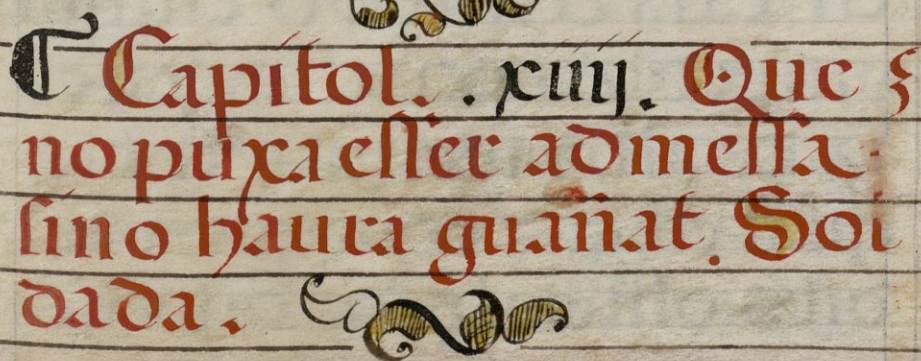 ¶ Capitol. .xiiij. Que
no puxa esser admessa
sino haura guañat. Sol
dada.